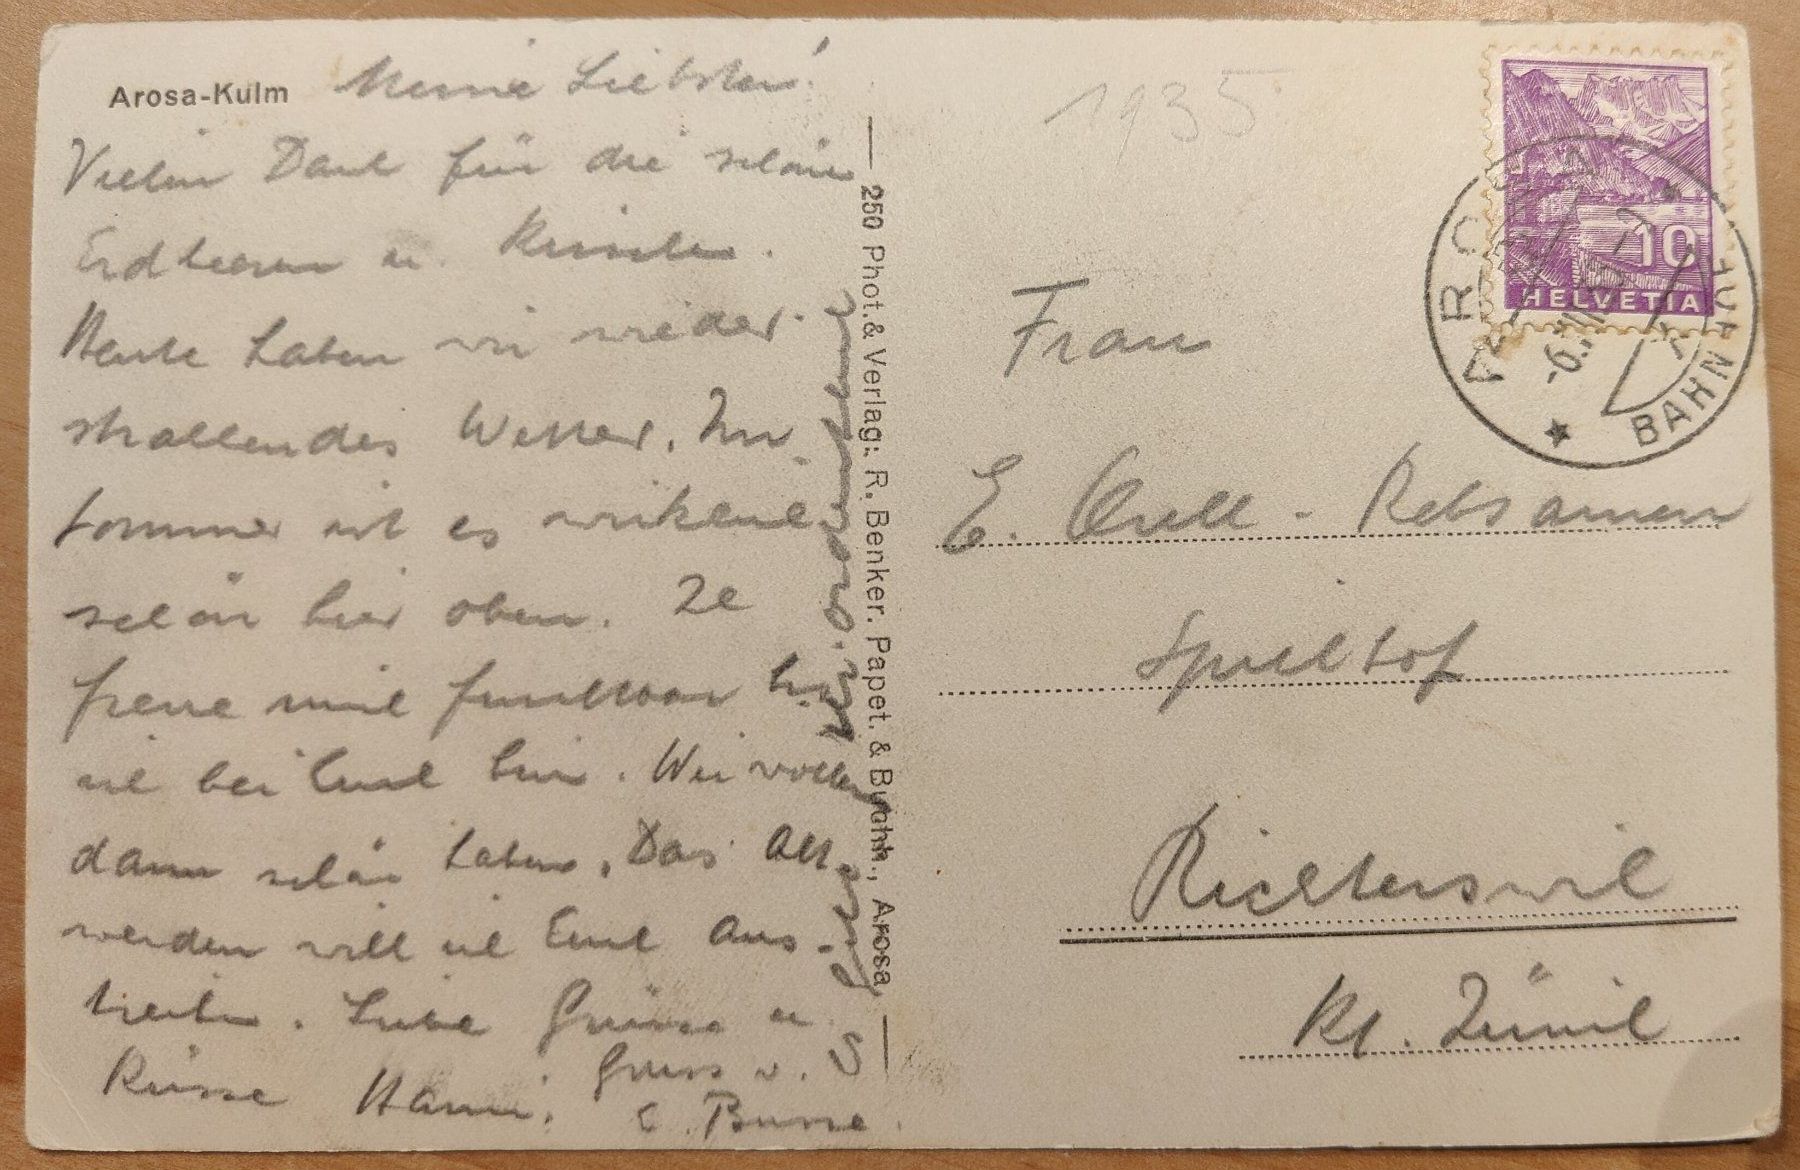 Arosa-Kulm
Meine Liebsten!
Vielen Dank für die schönen
Erdbeeren u. Kirschen.
Heute haben wir wieder
strahlendes Wetter. Im
Sommer ist es wirklich
schön hier oben. Ich
freue mich furchtbar bis
ich bei Euch bin. Wir wollen
dann schön haben. Das
werden will ich Euch aus-
Liebe Grüsse u.
Küsse Hanni.
Gruss v.
250 Phot. & Verlag: R. Benker. Papet. & Buchh., Arosa
1935
HELVETIA
10
AROSA
BAHN
Frau
E. Rebsamen
Spielhof
Richterswil
Kt. Zürich